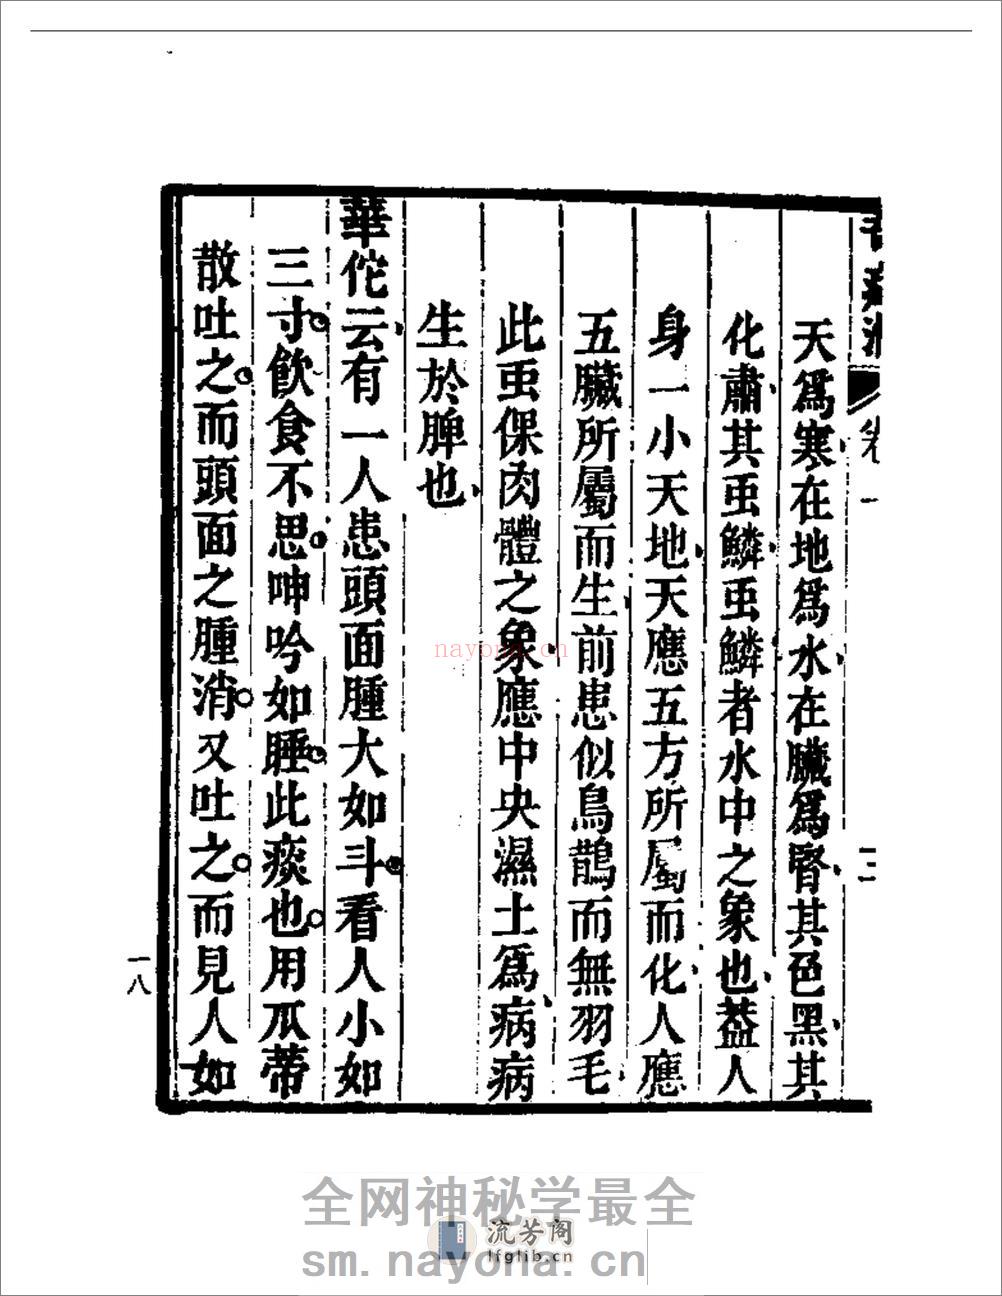 天爲寒在地爲水在臟爲腎其色黑其
化肅其䖝鱗䖝鱗者水中之象也葢人
身一小天地天應五方所屬而化人應
五臟所屬而生前患似鳥鵲而無羽毛
此䖝倮肉體之象應中央濕土爲病病
生於脾也
華佗云有一人患頭面腫大如斗看人小如
三寸飲食不思呻吟如睡此痰也用瓜蒂
散吐之而頭面之腫消又吐之而見人如
一八
nayona.cn
全网神秘学最全
流芳阁
lfglib.cn
sm.nayona.cn